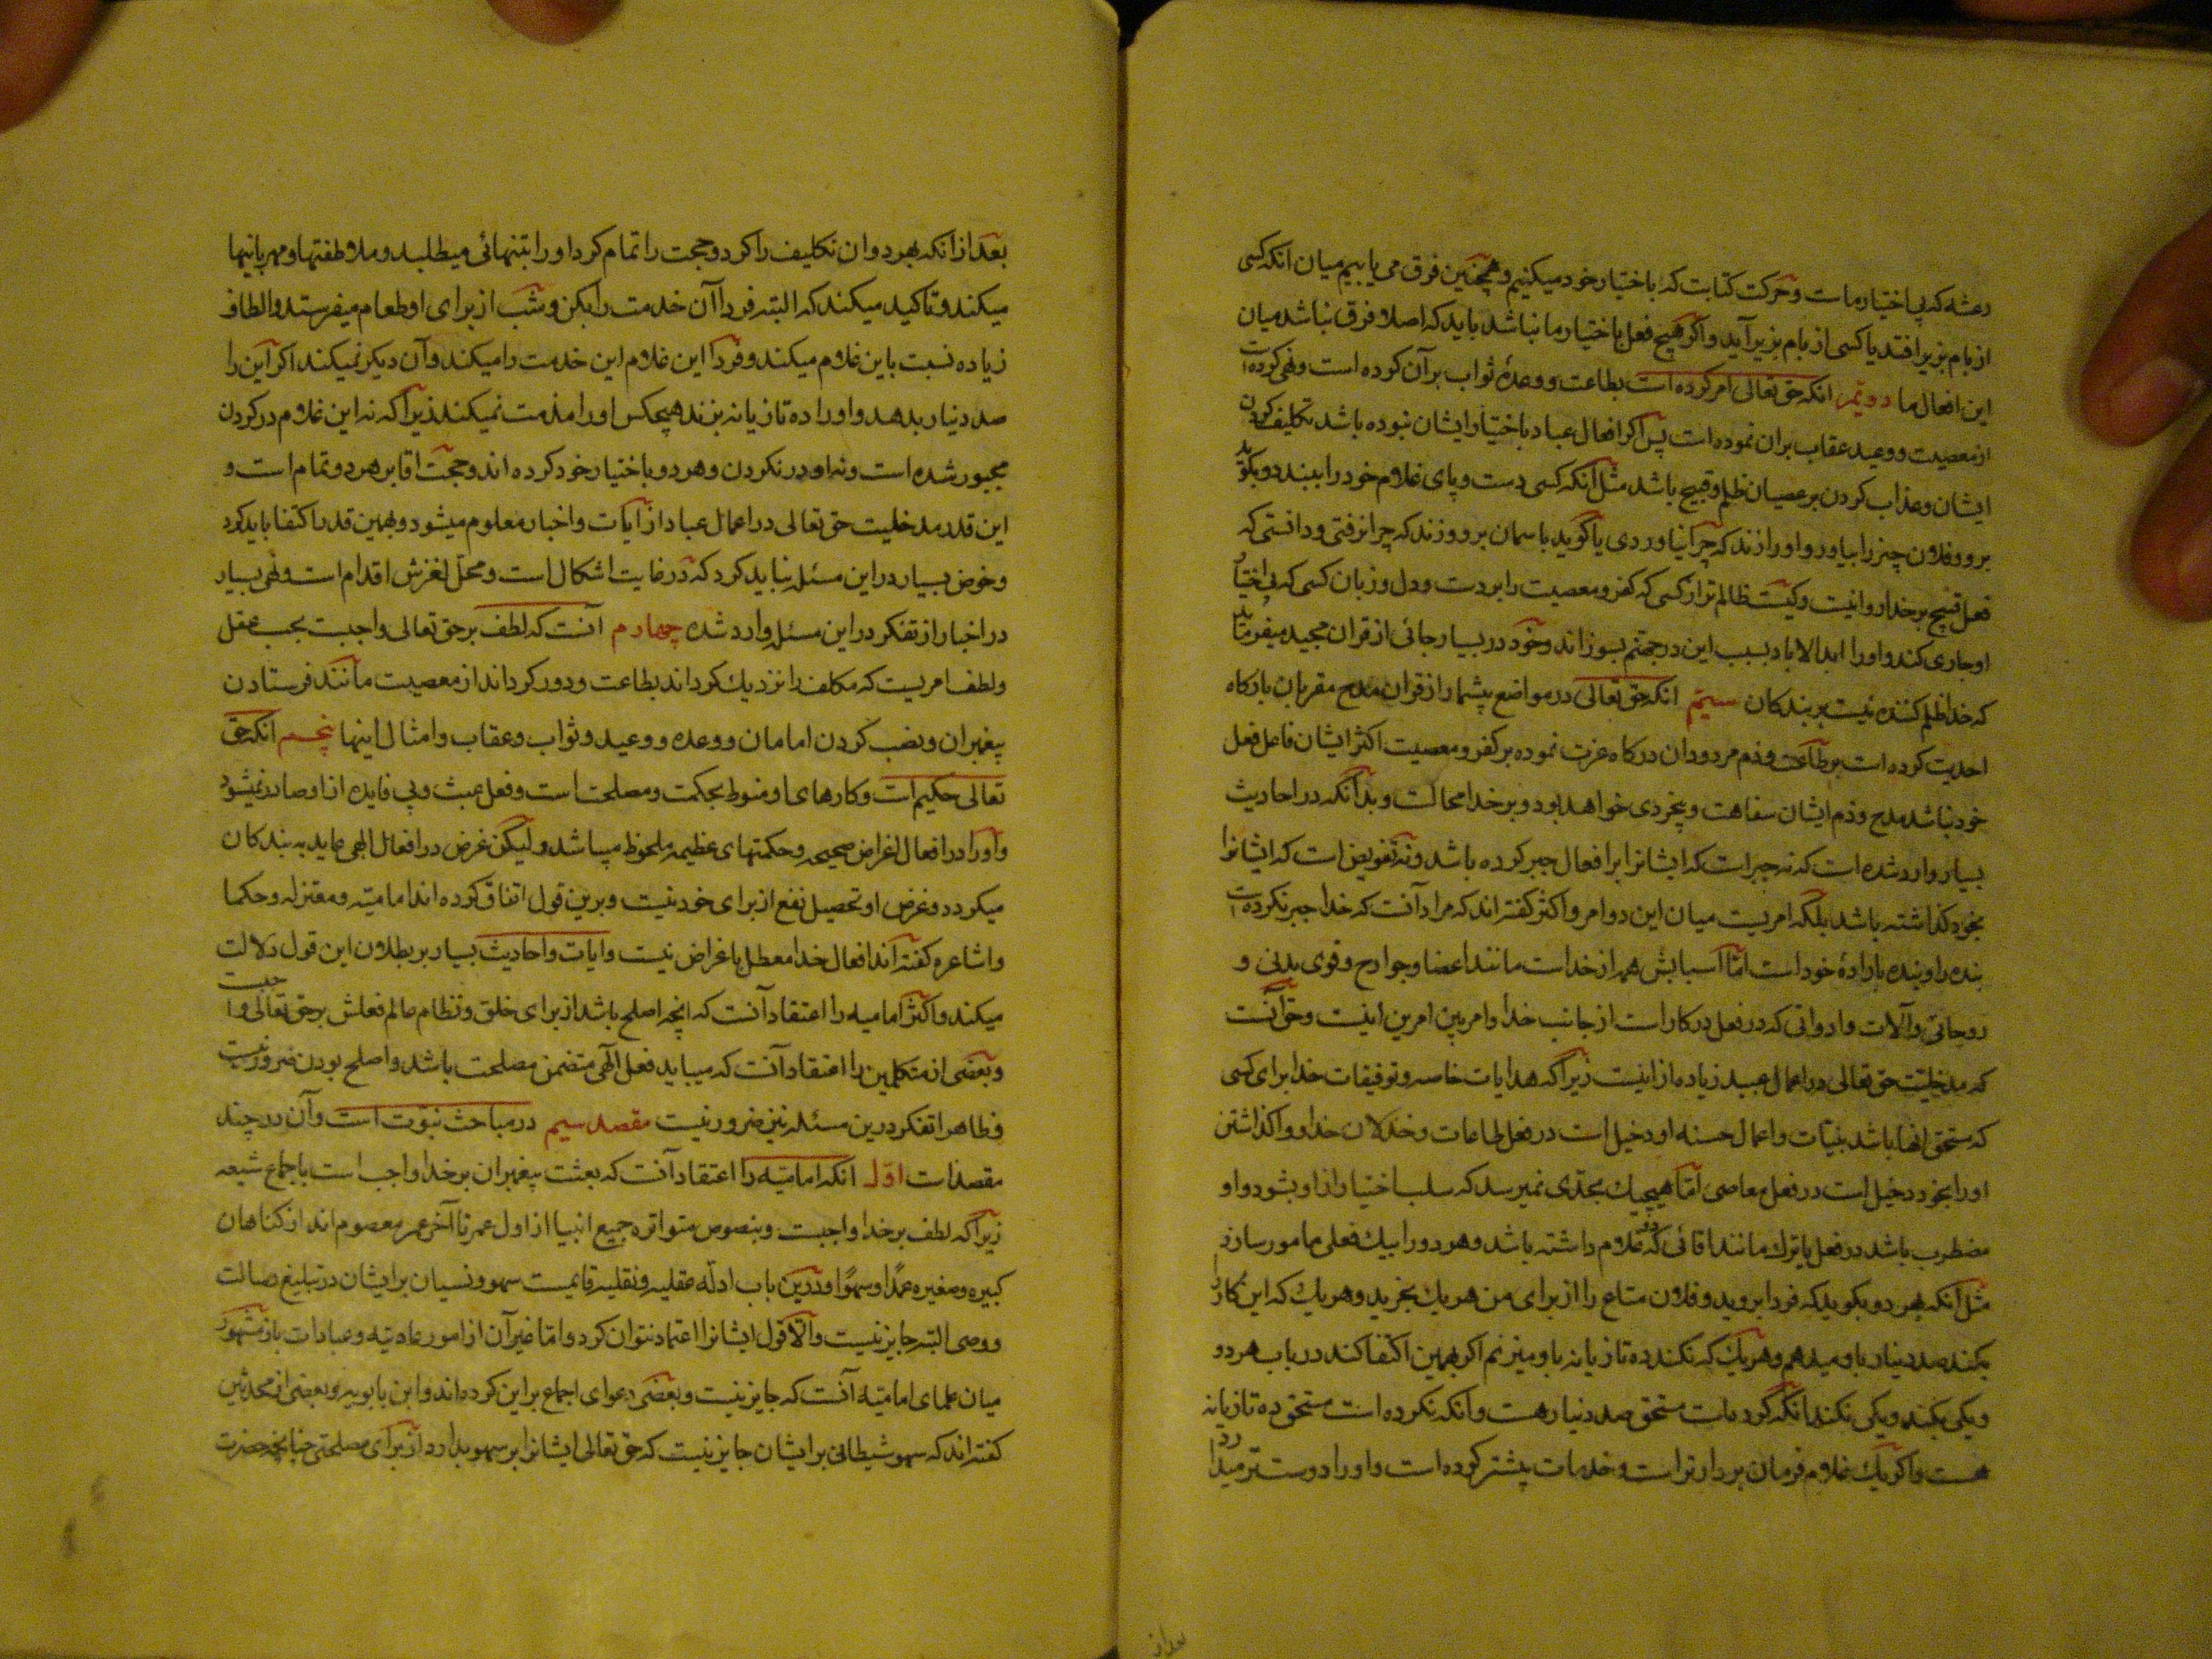 رعشه که بی اختیار ماست و حرکت کتابت که باختیار خود میکنیم و همچنین فرق می یابیم میان انکه کسی
از بام بزیر افتد یا کسی از بام بزیر آید و اگر هیچ فعل باختیار ما نباشد باید که اصلا فرق نباشد میان
این افعال ما دویّم انکه حق تعالی امر کرده است بطاعت و وعدهٔ ثواب بر آن کرده است و نهی کرده است
از معصیت و وعید عقاب بران نموده است پس اکر افعال عباد باختیار ایشان نبوده باشد تکلیف کردن
ایشان و عذاب کردن بر عصیان ظلم و قبیح باشد مثل آنکه کسی دست و پای غلام خود را ببندد و بکوید
برو و فلان چیز را بیاور و او را زند که چرا نیاوردی یا گوید باسمان برو و زند که چرا نرفتی و دانستی که
فعل قبیح بر خدا روا نیست و کیست ظالم تر از کسی که کفر و معصیت را بر دست و دل و زبان کسی که بی اختیار
او جاری کند و او را ابد الاباد بسبب این در جهنم بسوزاند و خود در بسیار جائی از قران مجید میفرماید
که خدا ظلم کننده نیست بر بندکان سیّم انکه حق تعالی در مواضع بیشمار از قران مدح مقربان بارکاه
احدیت کرده است بر طاعت و ذم مردودان درکاه عزت نموده بر کفر و معصیت اکثر ایشان فاعل فعل
خود نباشد مدح و ذم ایشان سفاهت و بیخردی خواهد بود و بر خدا محالست و بدانکه در احادیث
بسیار وارد شده است که نه جبر است که ایشانرا بر افعال جبر کرده باشد و نه تفویض است که ایشانرا
بخود کذاشته باشد بلکه امریست میان این دو امر و اکثر کفته اند که مراد آنست که خدا جبر نکرده است
بنده را و بنده بارادهٔ خود است امّا اسبابش همه از خداست مانند اعضا و جوارح و قوی بدنی و
روحانی و آلات و ادواتی که در فعل در کار است از جانب خدا و امر بین امرین اینست و حق آنست
که مدخلیّت حق تعالی در اعمال عبید زیاده از اینست زیرا که هدایات خاصه و توفیقات خدا برای کسی
که مستحق انها باشد بنیّات و اعمال حسنه او دخیل است در فعل طاعات و خذلان خدا و واکذاشتن
او را بخود دخیل است در فعل معاصی امّا هیچیک بحدّی نمیرسد که سلب اختیار از او بشود و او
مضطرب باشد در فعل یا ترک مانند اقائی که دو غلام داشته باشد و هر دو را بیک فعلی مامور سازد
مثل آنکه بهر دو بکوید که فردا بروید و فلان متاع را از برای من هر یک بخرید و هر یک که این کار را
بکند صد دینار باو میدهم و هر یک که نکند ده تازیانه باو میزنم اکر بهمین اکتفا کند در باب هر دو
و یکی بکند و یکی نکند انکه کرده است مستحق صد دینار هست و انکه نکرده است مستحق ده تازیانه
هست و اکر یک غلام فرمان بردار تر است و خدمات بیشتر کرده است و او را دوست تر میدارد
بعد از
بعد از انکه بهر دو ان تکلیف را کرد و حجت را تمام کرد او را بتنهائی میطلبد و ملاطفتها و مهربانیها
میکند و تاکید میکند که البته فردا آن خدمت را بکن و شب از برای او طعام میفرستد و الطاف
زیاده نسبت باین غلام میکند و فردا این غلام این خدمت را میکند و آن دیکر نمیکند اکر این را
صد دینار بدهد و او را ده تازیانه بزند هیچکس او را مذمت نمیکند زیرا که نه این غلام در کردن
مجبور شده است و نه او در نکردن و هر دو باختیار خود کرده اند و حجت اقا بر هر دو تمام است و
این قدر مدخلیت حق تعالی در اعمال عباد از آیات و اخبار معلوم میشود و بهمین قدر اکتفا باید کرد
و خوض بسیار در این مسئله نباید کرد که در غایت اشکال است و محلّ لغزش اقدام است و نهی بسیار
در اخبار از تفکر در این مسئله وارد شده چهارم آنست که لطف بر حق تعالی واجبست بحسب عقل
و لطف امریست که مکلف را نزدیک کرداند بطاعت و دور کرداند از معصیت مانند فرستادن
پیغمبران و نصب کردن امامان و وعده و وعید و ثواب و عقاب و امثال اینها پنجم انکه حق
تعالی حکیم است و کارهای او منوط بحکمت و مصلحت است و فعل عبث و بی فایده از او صادر نمیشود
و او را در افعال اغراض صحیحه و حکمتهای عظیمه ملحوظ میباشد و لیکن غرض در افعال الهی عاید به بندکان
میکردد و غرض او تحصیل نفع از برای خود نیست و برین قول اتفاق کرده اند امامیّه و معتزله و حکما
و اشاعره کفته اند افعال خدا معطل باغراض نیست و ایات و احادیث بسیار بر بطلان این قول دلالت
میکند و اکثر امامیه را اعتقاد آنست که انچه اصلح باشد از برای خلق و نظام عالم فعلش بر حق تعالی واجبست
و بعضی از متکلمین را اعتقاد آنست که میباید فعل الهی متضمن مصلحت باشد و اصلح بودن ضرور نیست
و ظاهرا تفکر درین مسئله نیز ضرور نیست مقصد سیم در مباحث نبوّت است و آن در چند
مقصد است اوّل انکه امامیّه را اعتقاد آنست که بعثت پیغمبران بر خدا واجب است باجماع شیعه
زیرا که لطف بر خدا واجبست و بنصوص متواتره جمیع انبیا از اول عمر تا آخر عمر معصوم اند از کناهان
کبیره و صغیره عمدًا و سهوًا و درین باب ادلّه عقلیه و نقلیه قایمست سهو و نسیان بر ایشان در تبلیغ رسالت
و وصی البته جایز نیست و الّا قول ایشانرا اعتماد نتوان کرد و امّا غیر آن از امور عادیّه و عبادات باز مشهور
میان علمای امامیّه آنست که جایز نیست و بعضی دعوای اجماع بر این کرده اند و ابن بابویه و بعضی از محدثین
کفته اند که سهو شیطانی بر ایشان جایز نیست که حق تعالی ایشانرا بر سهو بدارد از برای مصلحتی چنانچه حضرت